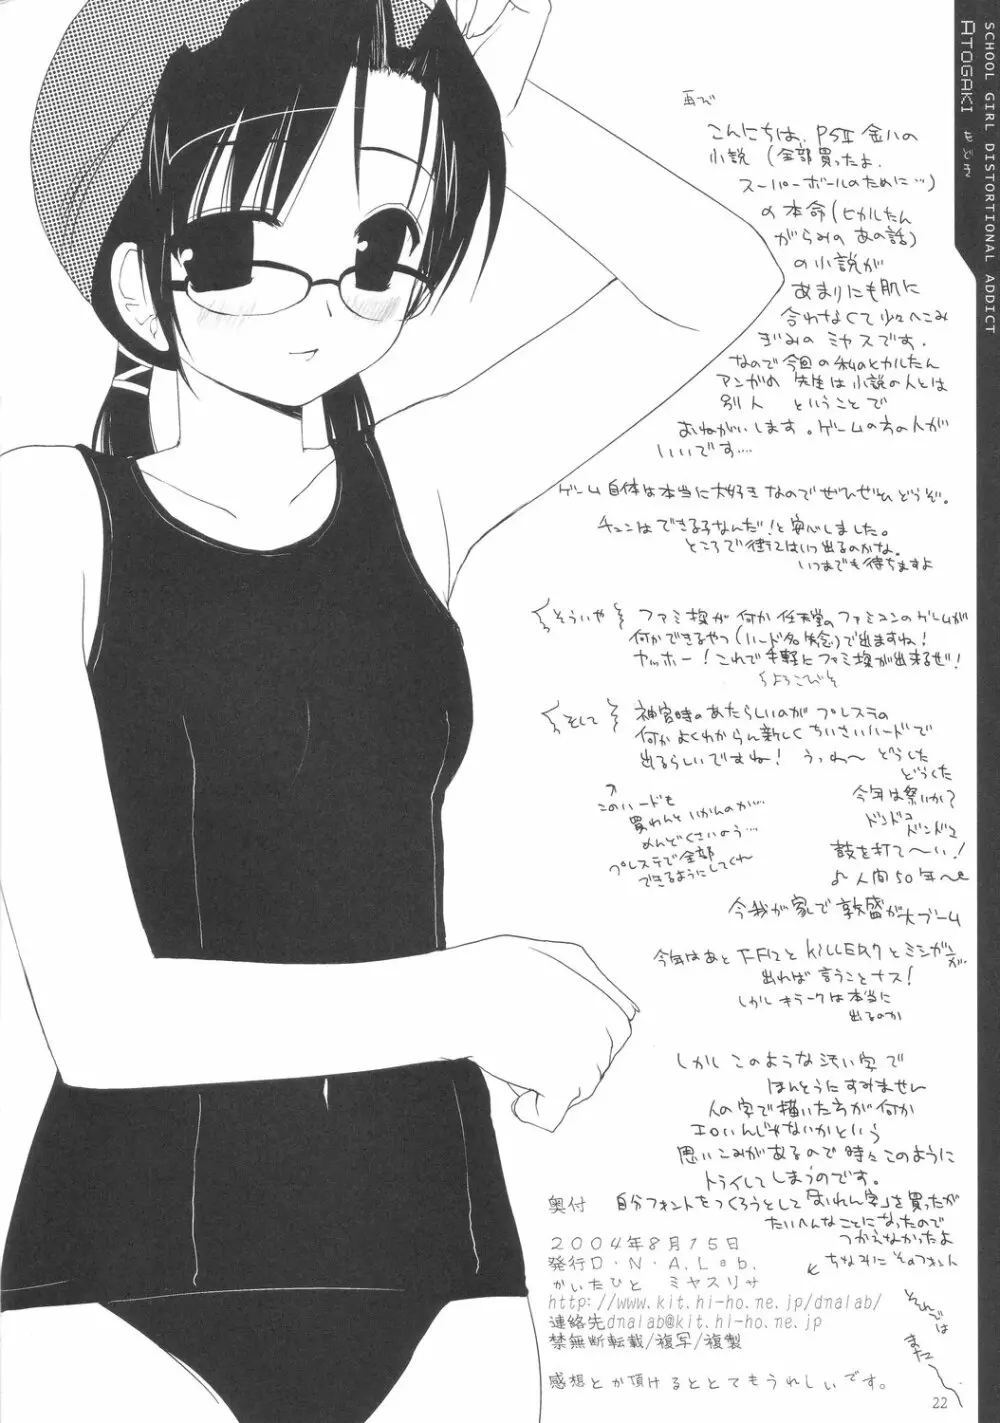 SCHOOL GIRL DISTORTIONAL ADDICT
ATOGAKI
再び
こんにちは、PSII 金八の
小説 (全部買ったよ、
スーパーボールのために…)
の本命(ヒカルたん
がらみの あの話)
の小説が
あまりにも肌に
合わなくて少々へこみ
ぎみの ミヤスです。
なので今回の私のヒカルたん
アンがめ 先生は小説の人とは
別人 ということで
おねがいします。ゲームの方の人が
いいです....
ゲーム自体は本当に大好きなのでぜひぜひどうぞ。
チュンはできる子なんだ!と安心しました。
ところで はいつ出るのかな。
いつまでも待ちますよ
そういや ファミ探が何か任天堂のファミコンのゲームが
何かできるやつ(ハード名失念)で出ますね!
ヤッホー!これで手軽にファミ探が出来るぜ!
よろこびそ
そして 神宮時のあたらしいのがプレステの
何かよくわからん新しくちいさいハードで
出るらしいですね! うっわ〜 どうくた
どうくた
↑このハードも
買わんといかんのか…
めんどくさいよう…
プレステで全部
できるようにしてくれ
今年は祭りか?
ドンドコ
ドンドコ
鼓を打て〜い!
♪人間50年〜
今我が家で敦盛が大ブーム
今年はあとFF12とKILLER7とミシガンが
出れば言うことナス!
しかしキラー7は本当に
出るのか
しかしこのような汚い字で
ほんとうにすみません
人の字で描いた方が何か
エロいんじゃないかという
思いこみがあるので時々このように
トライしてしまうのです。
奥付
自分フォントをつくろうとして「おれん字」を買ったが
たいへんなことになったので
つかえなかったよ
ちなみにそのフォント
2004年8月15日
発行D・N・A.Lab.
かいたひと ミヤスリサ
http://www.kit.hi-ho.ne.jp/dnalab/
連絡先dnalab@kit.hi-ho.ne.jp
禁無断転載/複写/複製
感想とか頂けるととてもうれしいです。
それでは
また〜
22